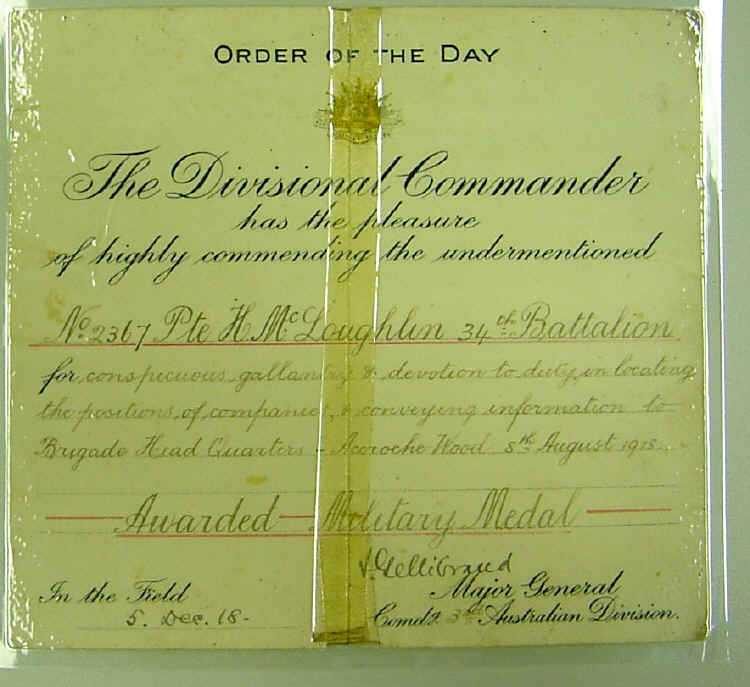 ORDER OF THE DAY
The Divisional Commander
has the pleasure
of highly commending the undermentioned
No. 2367 Pte H. McLoughlin 34th Battalion
for conspicuous gallantry & devotion to duty in locating
the positions of companies, & conveying information to
Brigade Head Quarters - Accroche Wood 8th August 1918
Awarded Military Medal
J. Gellibrand
In the Field Major General
5. Dec. 18- Comdg. 3rd Australian Division.